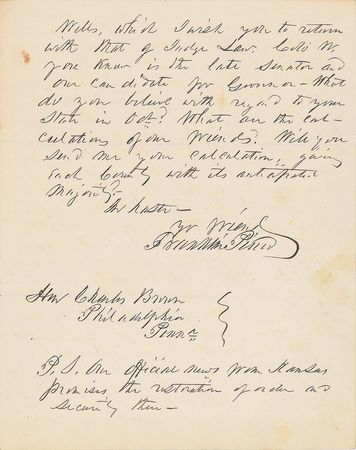 Wells, which I wish you to return
with that of Judge Law. Col: W.
you know is the late Senator and
our candidate for Governor - What
do you believe with regard to your
State in Oct? What are the cal-
culations of our friends? Will you
send me your calculation, giving
each County with its anticipated
Majority?
In haste -
Yr friend
Franklin Pierce
Hon Charles Brown
Philadelphia
Penna
P.S. Our Official news from Kansas
promises the restoration of order and
security there -